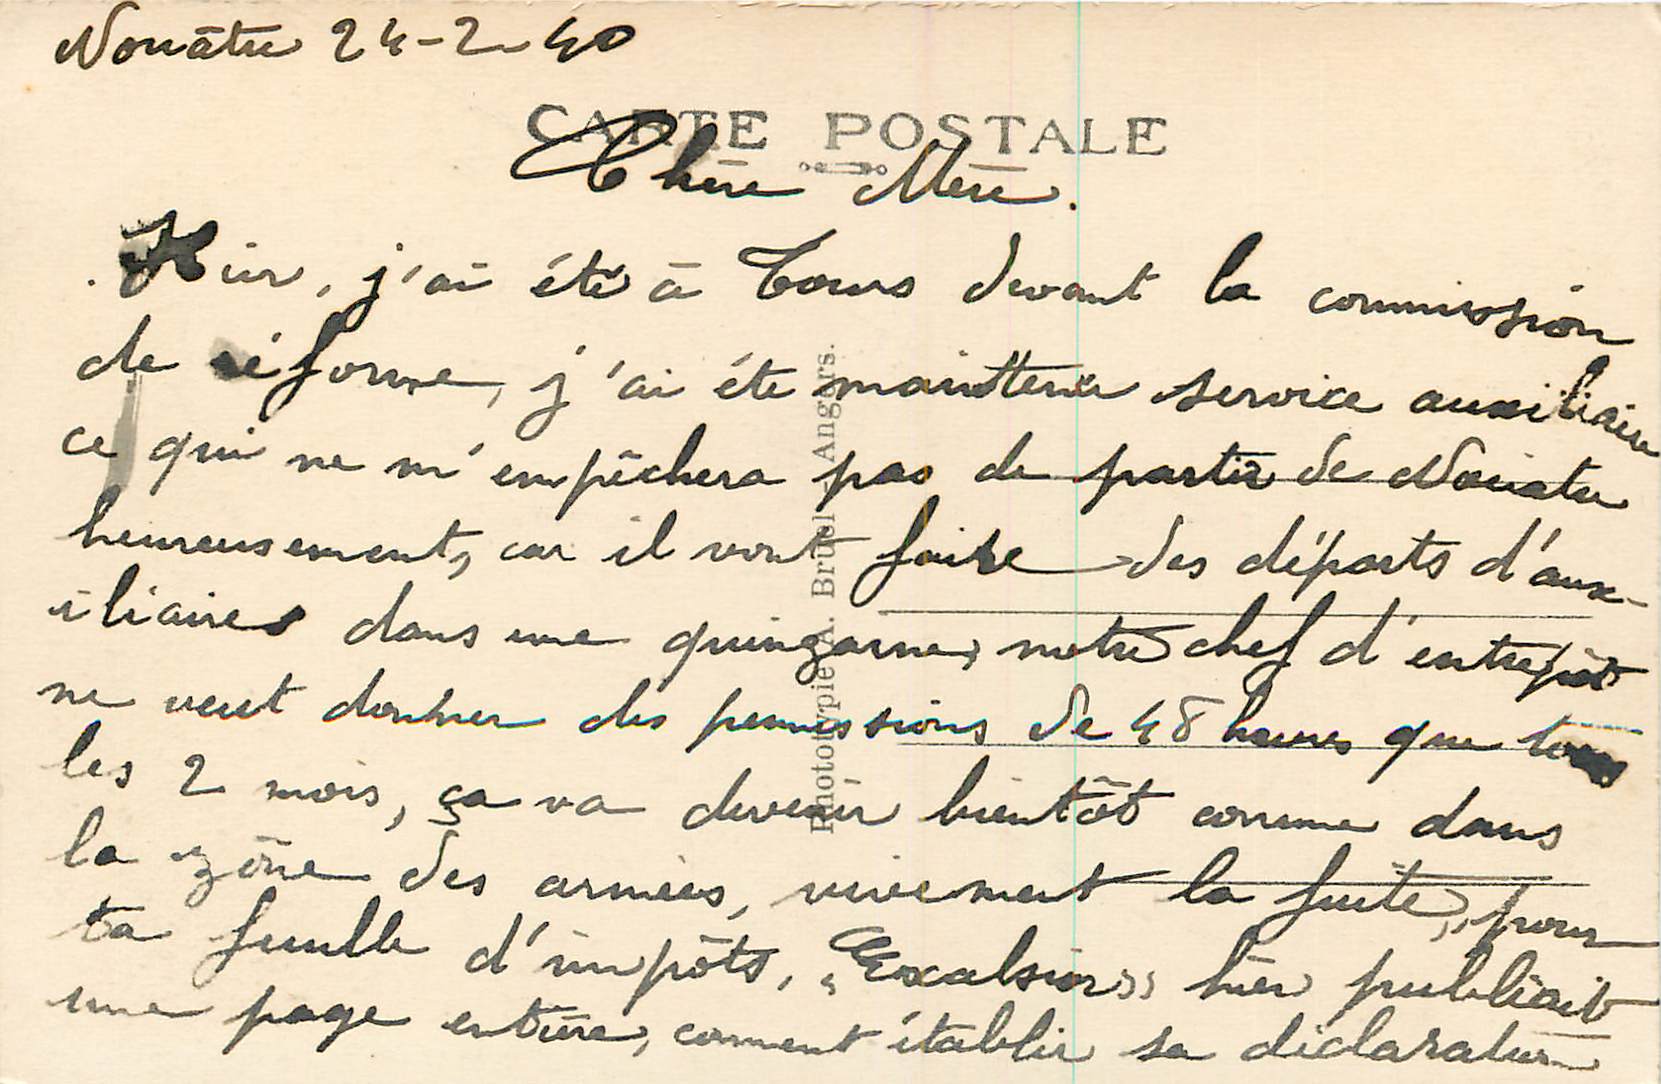 Nouâtre 24-2-40
CARTE POSTALE
Chère Mère.
Hier, j'ai été à Tours devant la commission
de réforme, j'ai été maintenu service auxiliaire
ce qui ne m'empêchera pas de partir de Nouatre
heureusement, car il vont faire des départs d'aux-
iliaires dans une quinzaine, notre chef d'entrepôt
ne veut donner des permissions de 48 heures que tous
les 2 mois, ça va devenir bientôt comme dans
la zône des armées, vivement la fuite, pour
ta feuille d'impôts, "Excelsior" hier publiait
une page entière, comment établir sa déclaration
Phototypie A. Bruel, Angers.